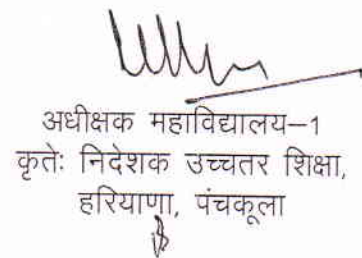 अधीक्षक महाविद्यालय–1
कृतेः निदेशक उच्चतर शिक्षा,
हरियाणा, पंचकूला